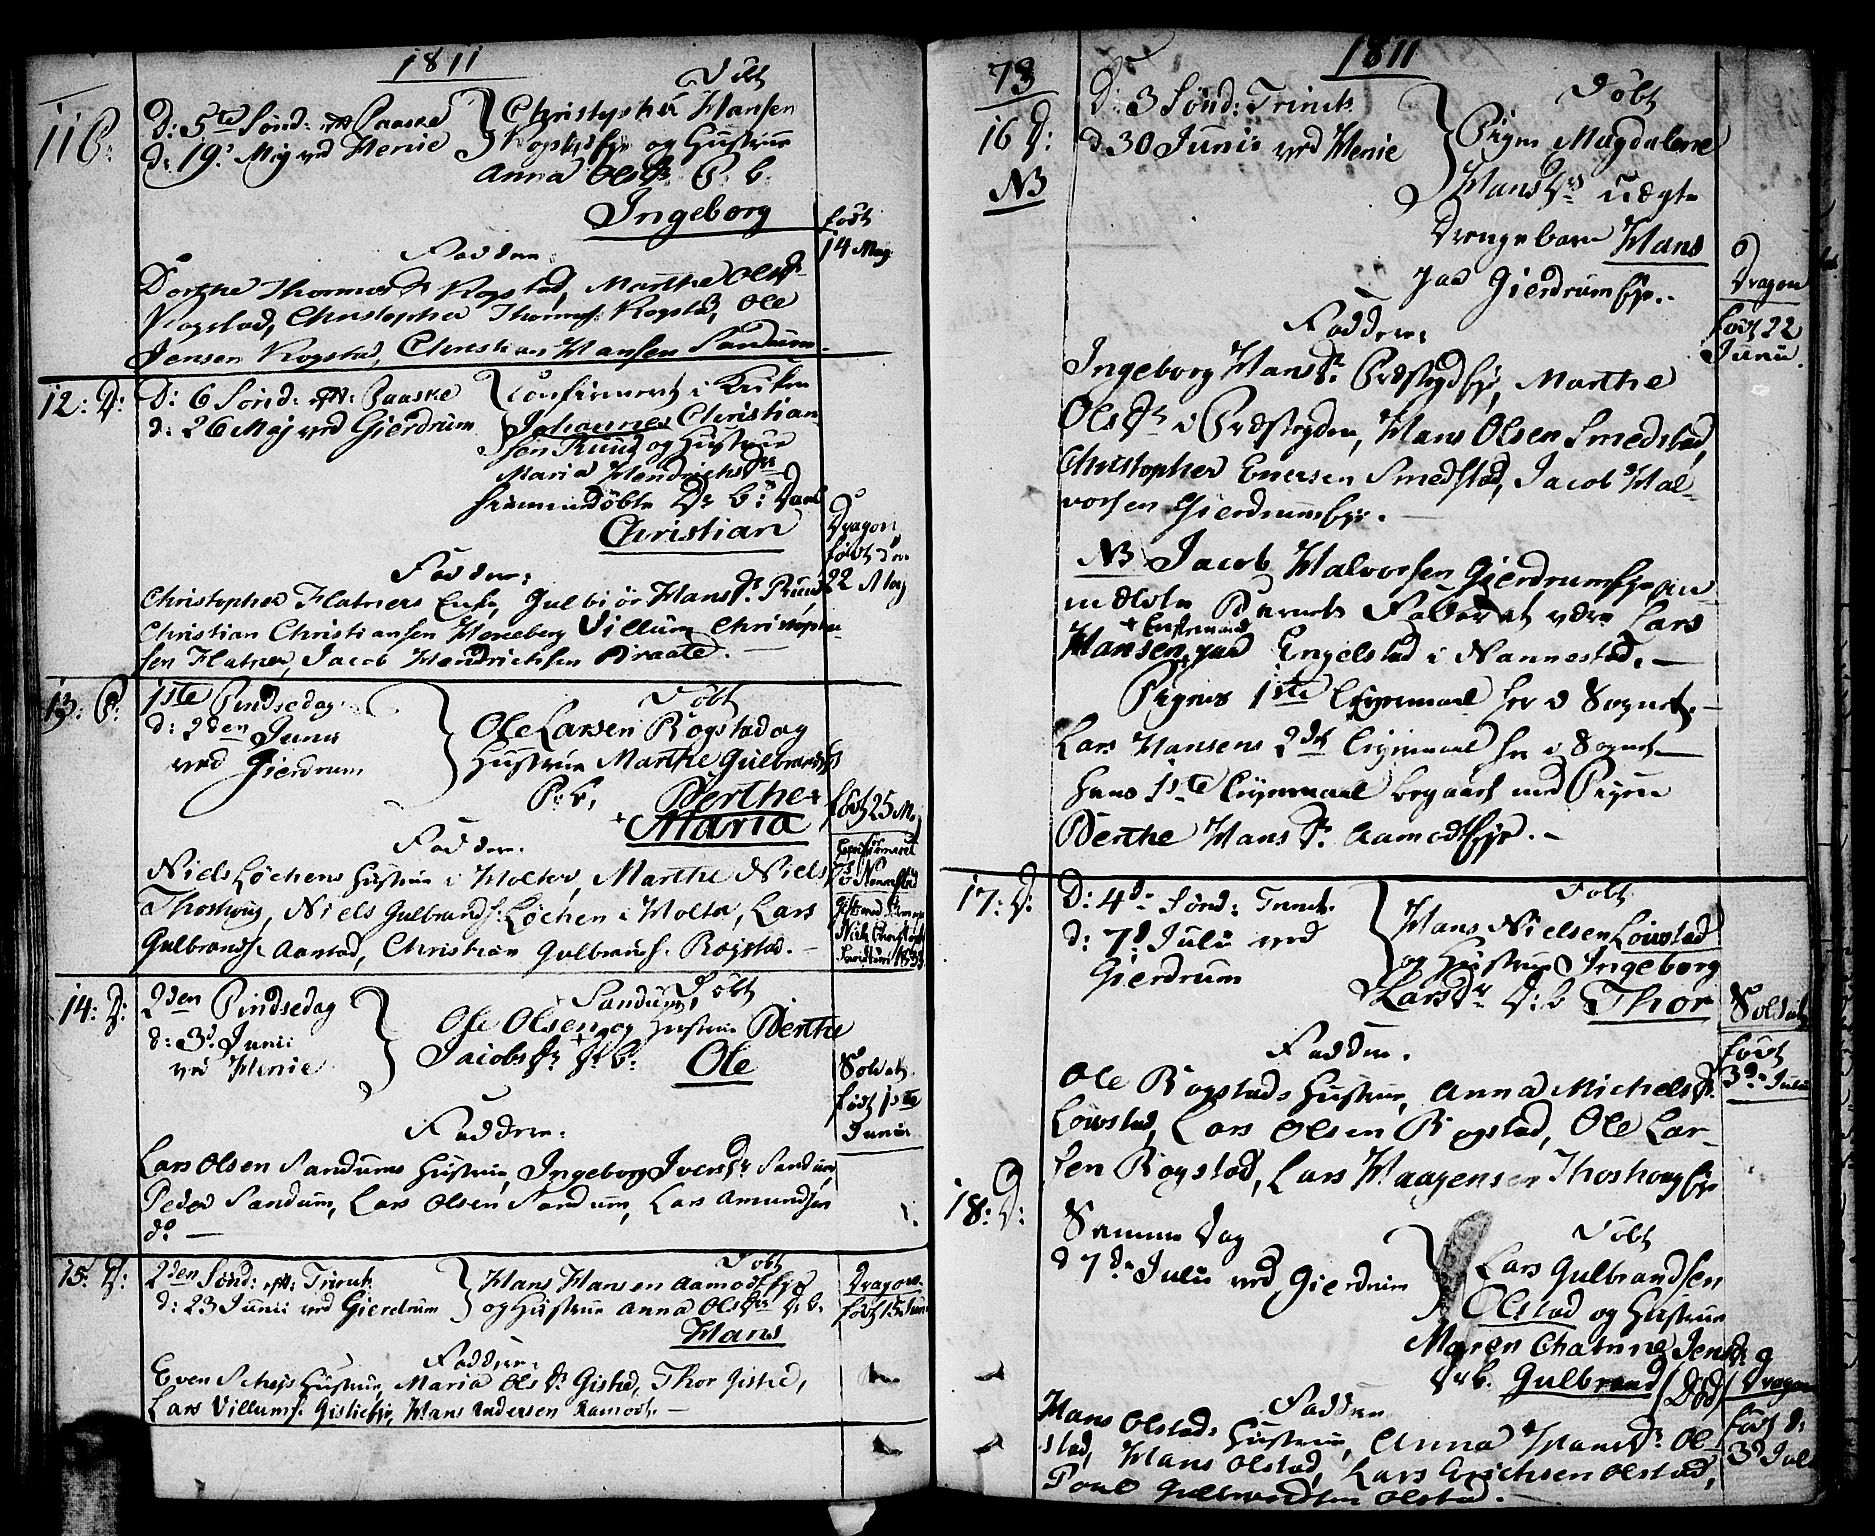 1811
11 P:
D: 5te Sønd: eft: Paaske
d: 19de Maj ved Henie
Døbt
Christopher Hansen
og Hustrue
Anna Ols Dr P. b.
Ingeborg
født
14 Maj
Faddere:
Dorthe Thomas Dr Rogstad, Marthe Ols Dr
Rogstad, Christopher Thomes: Rogstad, Ole
Jensen Rogstad, Christian Hansen Sandum.
12: D:
D: 6 Sønd: eft: Paaske
d: 26 Maj ved Gierdrum
Confirmert i Kirken
Johannes Christian-
sen Ruud og Hustrue
Maria Hendrichs Dr
hiemmedøbte D: b:
Christian
Dragon
født den
22 Maj
Faddere:
Christopher Flatners Enke, Gulbiør Hans Dr Ruud
Christian Christiansen Hereberg Villum Christopher-
sen Flatner, Jacob Hendrichsen Braate.
13: P:
1ste Pindsedag
d: 2den Junii
ved Gierdrum
Døbt
Ole Larsen Rogstad og
Hustrue Marthe Gulbrands Dr
P: b,
Berthe +
+ Maria
født 25 M.
Faddere:
Niels Løchens Hustrue i Holter, Marthe Niels Dr
Thoshoug, Niels Gulbrands: Løchen i Holter, Lars
Gulbrands: Aamod, Christian Gulbrands: Rogstad.
14: D:
2den Pindsedag
d: 3d Junii
ved Henie
Døbt
+ Sandum,
Ole Olsen og Hustrue Berthe
Jacobs Dr D: b:
Ole
Soldat
født 1ste
Junii
Faddere:
Lars Olsen Sandums Hustrue, Ingeborg Ivers Dr Sandum,
Peder Sandum, Lars Olsen Sandum, Lars Amundsen
do —
15: D:
2den Sønd: eft: Trinit:
d: 23 Junii ved Gierdrum
Døbt
Hans Hansen Aamodteje
og Hustrue Anna Ols Dr D: b:
Hans
Dragon
født 15 Junii
Faddere:
Even Hustrue, Maria Ols Dr Gistad, Thor Gistad,
Lars Villums: Gistieje, Hans Andersen Aamodt. —
73
1811
16 D:
NB
D: 3 Sønd: Trinit:
d 30 Junii ved Henie
Døbt
Pigen Magdalene
Hans Dr uægte
Drengebarn Hans
paa Gierdrumseje.
Dragon
født 22
Junii
Faddere:
Ingeborg Hans Dr Præstegdseje, Marthe
Ols Dr i Præstegden, Hans Olsen Smedstad,
Christopher Enersen Smedstad, Jacob Hal-
vorsen Gierdrumseje. —
NB Jacob Halvorsen Gierdrumseje an-
meldte Barnets Fader at være Lars
+ Enkemand
Hansen, paa Engelstad i Nannestad. —
Pigens 1ste Leyermaal her i Sognet. —
Lars Hansens 2det Leyermaal her i Sognet —
hans 1ste Leyermaal begaaet med Pigen
Berthe Hans Dr Aamodteje. —
17: D:
D: 4de Sønd: Trinit:
d: 7d Julii ved
Gierdrum
Døbt
Hans Nielsen Lowstad
og Hustrue Ingeborg
Lars Dr D: b Thor
Soldat
født
3de Julii
Faddere.
Ole Rogstads Hustrue, Anna Michels Dr
Lowstad, Lars Olsen Rogstad, Ole Lar-
sen Rogstad, Lars Haagensen Thoshougeje
18: D:
Samme Dag
d 7de Julii ved Gierdrum
Døbt
Lars Gulbrandsen
Olstad og Hustrue
Maren Chatrine Jens Dr
D: b. Gulbrand (Død)
Dragon
født d:
3d Julii
Faddere
Hans Olstads Hustrue, Anna Hans Dr Ol-
stad, Hans Olstad, Lars Erichsen Olstad,
Poul Gulbrandsen Olstad.